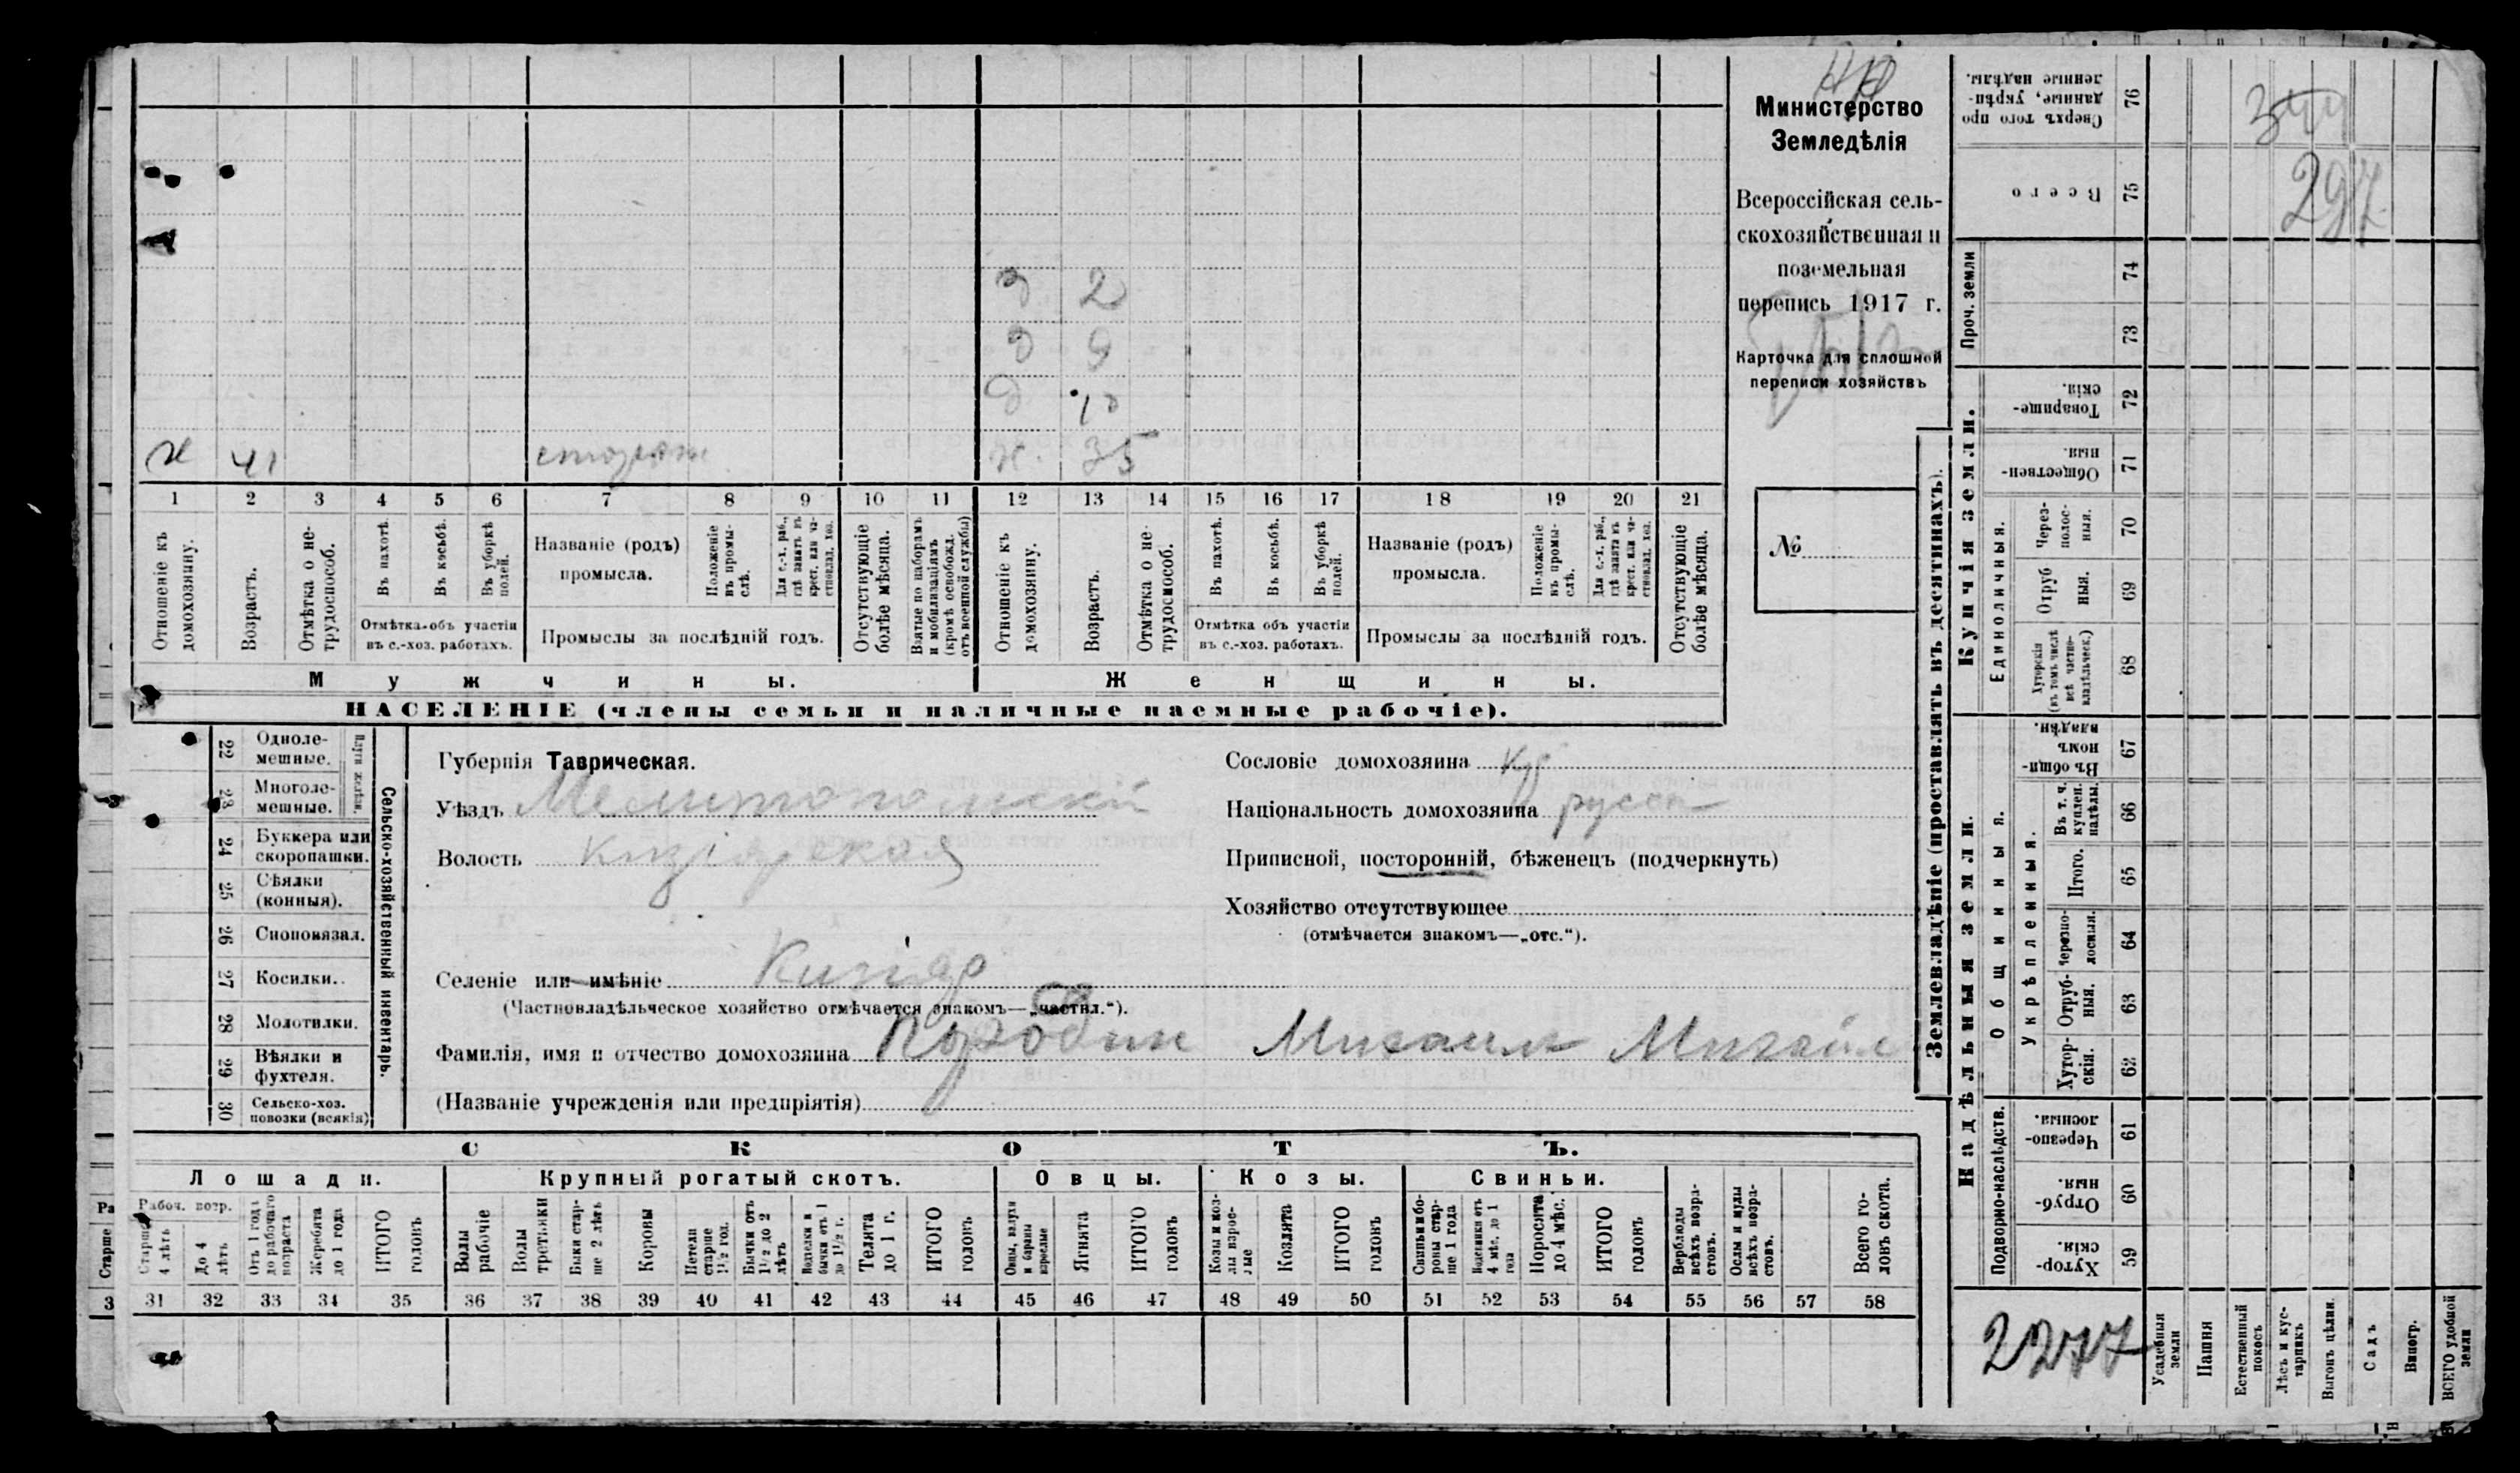 Министерство
Земледѣлія
Всероссійская сель-
скохозяйственная и
поземельная
перепись 1917 г.
Карточка для сплошной
переписи хозяйствъ
№
д 2
д 9
д 10
х 41 сторож ж. 35
1 2 3 4 5 6 7 8 9 10 11 12 13 14 15 16 17 18 19 20 21
Отношеніе къ домохозяину.
Возрастъ.
Отмѣтка о не-трудоспособ.
Въ пахотѣ.
Въ косьбѣ.
Въ уборкѣ полей.
Отмѣтка объ участіи
въ с.-хоз. работахъ.
Названіе (родъ)
промысла.
Положеніе въ промы-слѣ.
Для с.-х. раб., гдѣ занятъ въ крест. или ча-стновлад. хоз.
Промыслы за послѣдній годъ.
Отсутствующіе болѣе мѣсяца.
Взятые по наборамъ и мобилизаціямъ (кромѣ освобожд. отъ военной службы)
Отношеніе къ домохозяину.
Возрастъ.
Отмѣтка о не-трудоспособ.
Въ пахотѣ.
Въ косьбѣ.
Въ уборкѣ полей.
Отмѣтка объ участіи
въ с.-хоз. работахъ.
Названіе (родъ)
промысла.
Положеніе въ промы-слѣ.
Для с.-х. раб., гдѣ занята въ крест. или ча-стновлад. хоз.
Промыслы за послѣдній годъ.
Отсутствующіе болѣе мѣсяца.
Мужчины. Женщины.
НАСЕЛЕНІЕ (члены семьи и наличные наемные рабочіе).
Сельско-хозяйственный инвентарь.
22 Одноле-мешные.
23 Многоле-мешные.
24 Буккера или скоропашки.
25 Сѣялки (конныя).
26 Сноповязал.
27 Косилки.
28 Молотилки.
29 Вѣялки и фухтеля.
30 Сельско-хоз. повозки (всякія)
Губернія Таврическая.
Уѣздъ Мелитопольскій
Волость Кизіярская
Селеніе или имѣніе Кизіяр
(Частновладѣльческое хозяйство отмѣчается знакомъ—„частвл.“).
Фамилія, имя и отчество домохозяина Михаил Михайл
(Названіе учрежденія или предпріятія)
Сословіе домохозяина кр
Національность домохозяина русск
Приписной, посторонній, бѣженецъ (подчеркнуть)
Хозяйство отсутствующее
(отмѣчается знакомъ—„отс.“).
СКОТЪ.
Лошади. Крупный рогатый скотъ. Овцы. Козы. Свиньи.
Рабоч. возр.
Старше 4 лѣтъ
До 4 лѣтъ
Отъ 1 года до рабочаго возраста
Жеребята до 1 года
ИТОГО головъ
Волы рабочіе
Волы третьяки
Быки стар-ше 2 лѣтъ
Коровы
Нетели старше 1½ год.
Бычки отъ 1½ до 2 лѣтъ
Телята до 1 г.
ИТОГО головъ
Ягнята
ИТОГО головъ
Козы и коз-лы взрос-лые
Козлята
ИТОГО головъ
Свиньи и бо-ровы стар-ше 1 года
Поросята до 4 мѣс.
ИТОГО головъ
Верблюды всѣхъ возра-стовъ.
Ослы и мулы всѣхъ возра-стовъ.
Всего го-ловъ скота.
31 32 33 34 35 36 37 38 39 40 41 42 43 44 45 46 47 48 49 50 51 52 53 54 55 56 57 58
Землевладѣніе (проставлять въ десятинахъ).
Купчія земли.
Надѣльныя земли.
Сверхъ того про-данные, укрѣп-ленные надѣлы. 76
Всего 75
Проч. земли 74 73
Товарище-скія. 72
Обществен-ныя. 71
Единоличныя.
Через-полос-ныя. 70
Отруб-ныя. 69
Хуторскія (въ томъ числѣ всѣ частно-владѣльческ.) 68
Общинныя.
Въ общи-номъ владѣн. 67
Укрѣпленныя.
Въ т. ч. куплен. надѣлы. 66
Итого. 65
Черезпо-лосныя. 64
Отруб-ныя. 63
Хутор-скія. 62
Подворно-наслѣдств.
Черезпо-лосныя. 61
Отруб-ныя. 60
Хутор-скія. 59
297
2277
Усадебныя земли
Пашня
Естественный покосъ
Лѣсъ и кус-тарникъ
Выгонъ цѣлин.
Садъ
Виногр.
ВСЕГО удобной земли